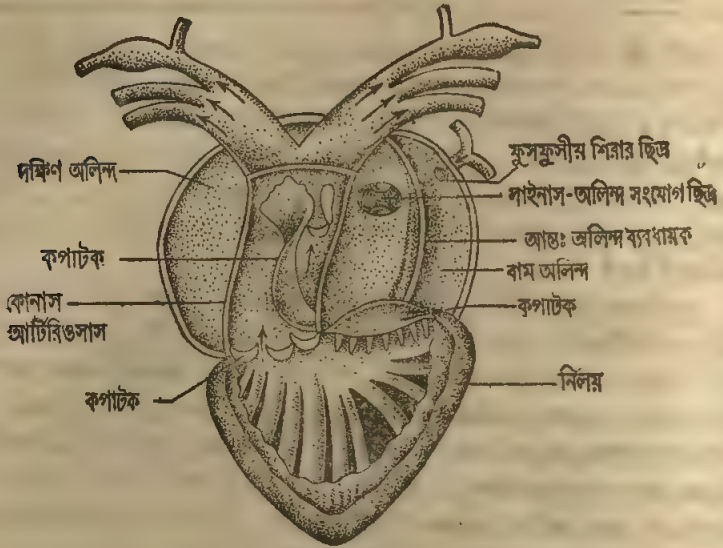 দক্ষিণ অলিন্দ
কপাটক
কোনাস
আর্টিরিওসাস
কপাটক
ফুসফুসীয় শিরার ছিদ্র
সাইনাস-অলিন্দ সংযোগ ছিদ্র
আন্তঃ অলিন্দ ব্যবধায়ক
বাম অলিন্দ
কপাটক
নিলয়